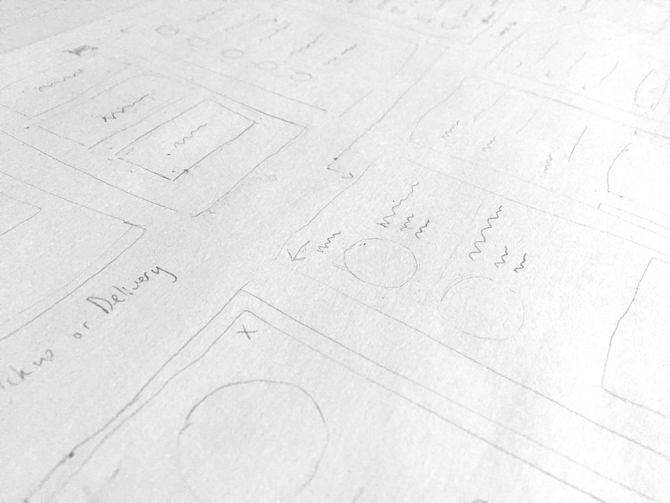 Pickup or Delivery
X